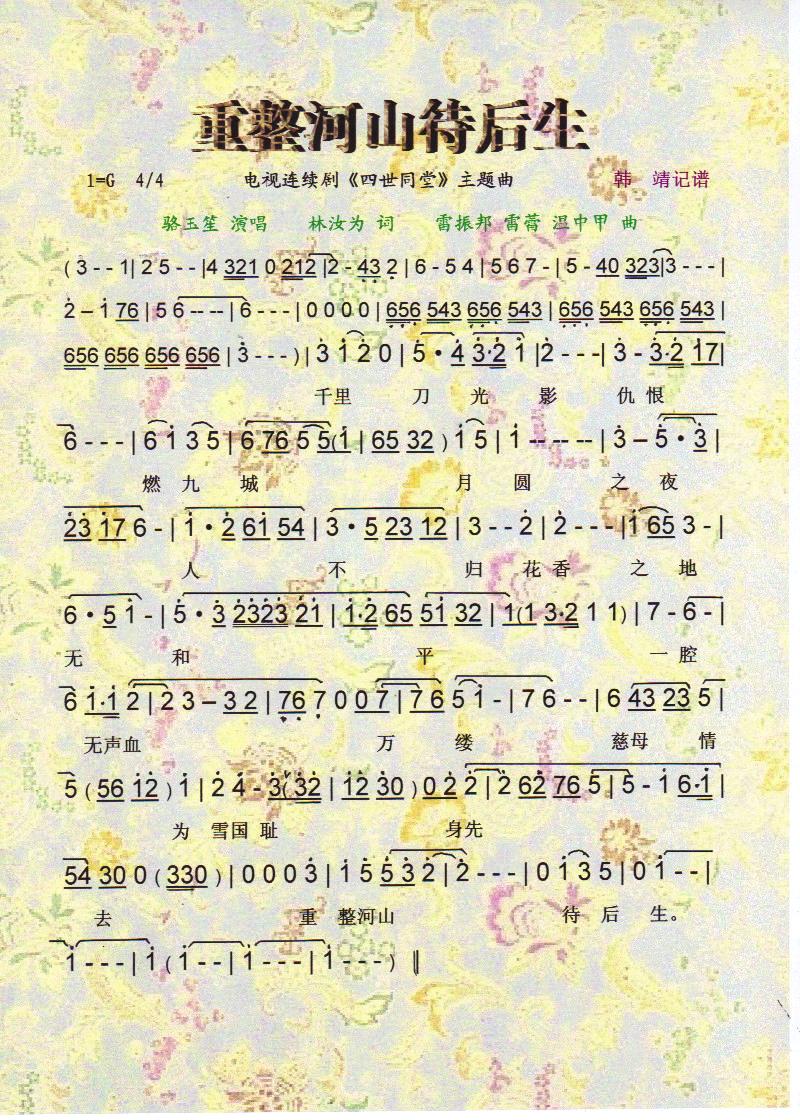 重整河山待后生
1=G 4/4 电视连续剧《四世同堂》主题曲 韩 靖记谱
骆玉笙 演唱 林汝为 词 雷振邦 雷蕾 温中甲 曲
( 3 - - 1 | 2 5 - - | 4 321 0 212 | 2 - 43 2 | 6 - 5 4 | 5 6 7 - | 5 - 40 323 | 3 - - - |
2 - 1 76 | 5 6 -- -- | 6 - - - | 0 0 0 0 | 656 543 656 543 | 656 543 656 543 |
656 656 656 656 | 3 - - - ) | 3 1 2 0 | 5 · 4 3·2 1 | 2 - - - | 3 - 3·2 17 |
千里 刀 光 影 仇 恨
6 - - - | 6 1 3 5 | 6 76 5 5 ( 1 | 65 32 ) 1 5 | 1 -- -- -- | 3 - 5 · 3 |
燃 九 城 月 圆 之 夜
23 17 6 - | 1 · 2 61 54 | 3 · 5 23 12 | 3 - - 2 | 2 - - - | 1 65 3 - |
人 不 归 花 香 之 地
6 · 5 1 - | 5 · 3 2323 21 | 1·2 65 51 32 | 1 ( 1 3·2 1 1 ) | 7 - 6 - |
无 和 平 一 腔
6 1·1 2 | 2 3 - 3 2 | 76 7 0 0 7 | 7 6 5 1 - | 7 6 - - | 6 43 23 5 |
无声血 万 缕 慈母 情
5 ( 56 12 ) 1 | 2 4 - 3 ( 32 | 12 30 ) 0 2 2 | 2 62 76 5 | 5 - 1 6·1 |
为 雪国 耻 身先
54 30 0 ( 330 ) | 0 0 0 3 | 1 5 53 2 | 2 - - - | 0 1 3 5 | 0 1 - - |
去 重 整河山 待 后 生。
1 - - - | 1 ( 1 - - | 1 - - - | 1 - - - ) ‖